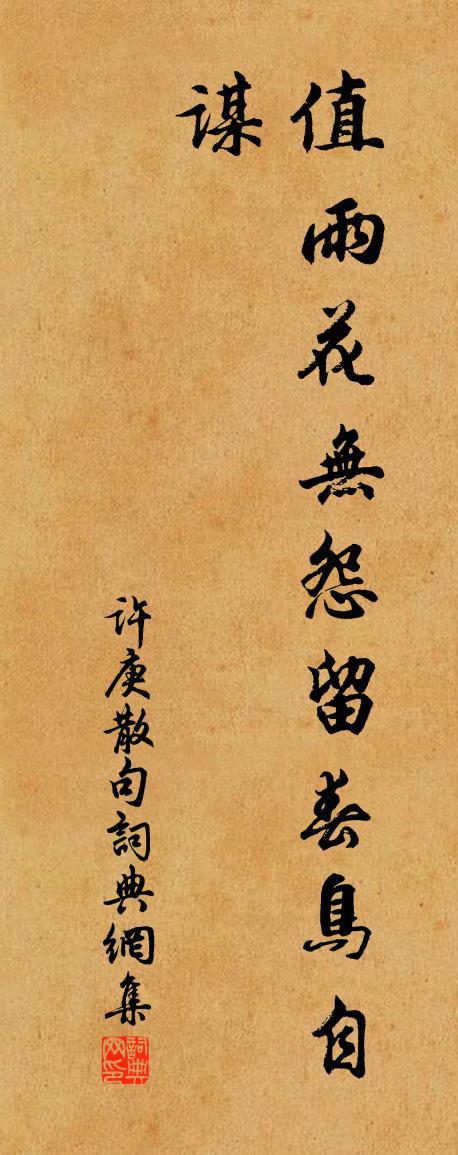 值雨花無怨留春鳥自
謀
許庚散句詞典網集
詞典網印